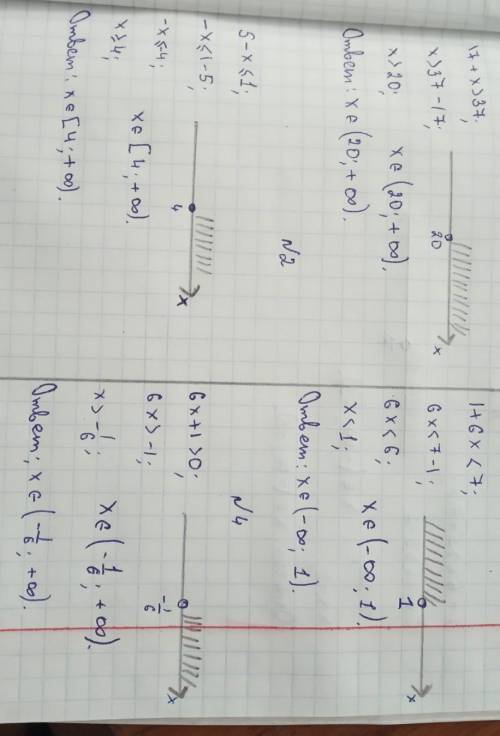 17+x>37;
x>37-17;
x>20;
20
x
x∈(20;+∞).
Ответ: x∈(20;+∞).
N2
5-x≤1;
-x≤1-5;
-x≤-4;
x≥4;
4
x
x∈[4;+∞).
Ответ: x∈[4;+∞).
1+6x<7;
6x<7-1;
6x<6;
x<1;
1
x
x∈(-∞;1).
Ответ: x∈(-∞;1).
N4
6x+1>0;
6x>-1;
x>-1/6;
-1/6
x
x∈(-1/6;+∞).
Ответ; x∈(-1/6;+∞).